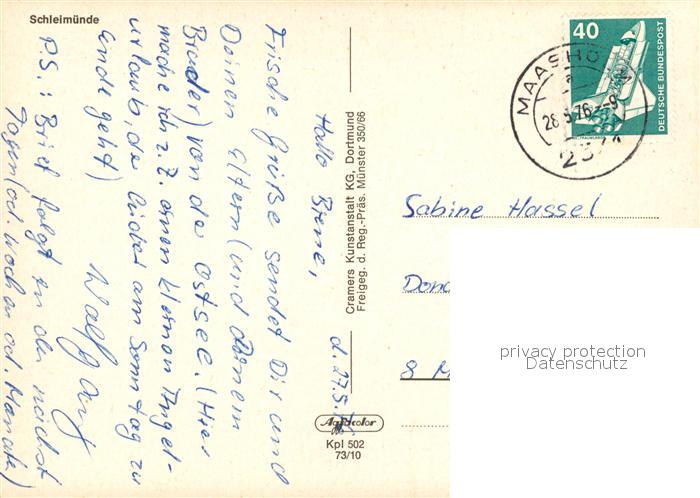 Schleimünde
d. 27.5.
Hallo Biene,
Frische Grüße sendet Dir und
Deinen Eltern (und Deinem
Bruder) von der Ostsee. (Hier
mache ich z. Z. einen kleinen Angel-
urlaub, der leider am Sonntag zu
Ende geht)
Wolfgang
P.S.: Brief folgt in den nächst
Tagen (od. Wochen od. Monate)
Cramers Kunstanstalt KG, Dortmund
Freigeg. d. Reg.-Präs. Münster 350/66
Kpl 502
73/10
40
DEUTSCHE BUNDESPOST
MAASHO
28.5.76
Sabine Hassel
8 M
privacy protection
Datenschutz